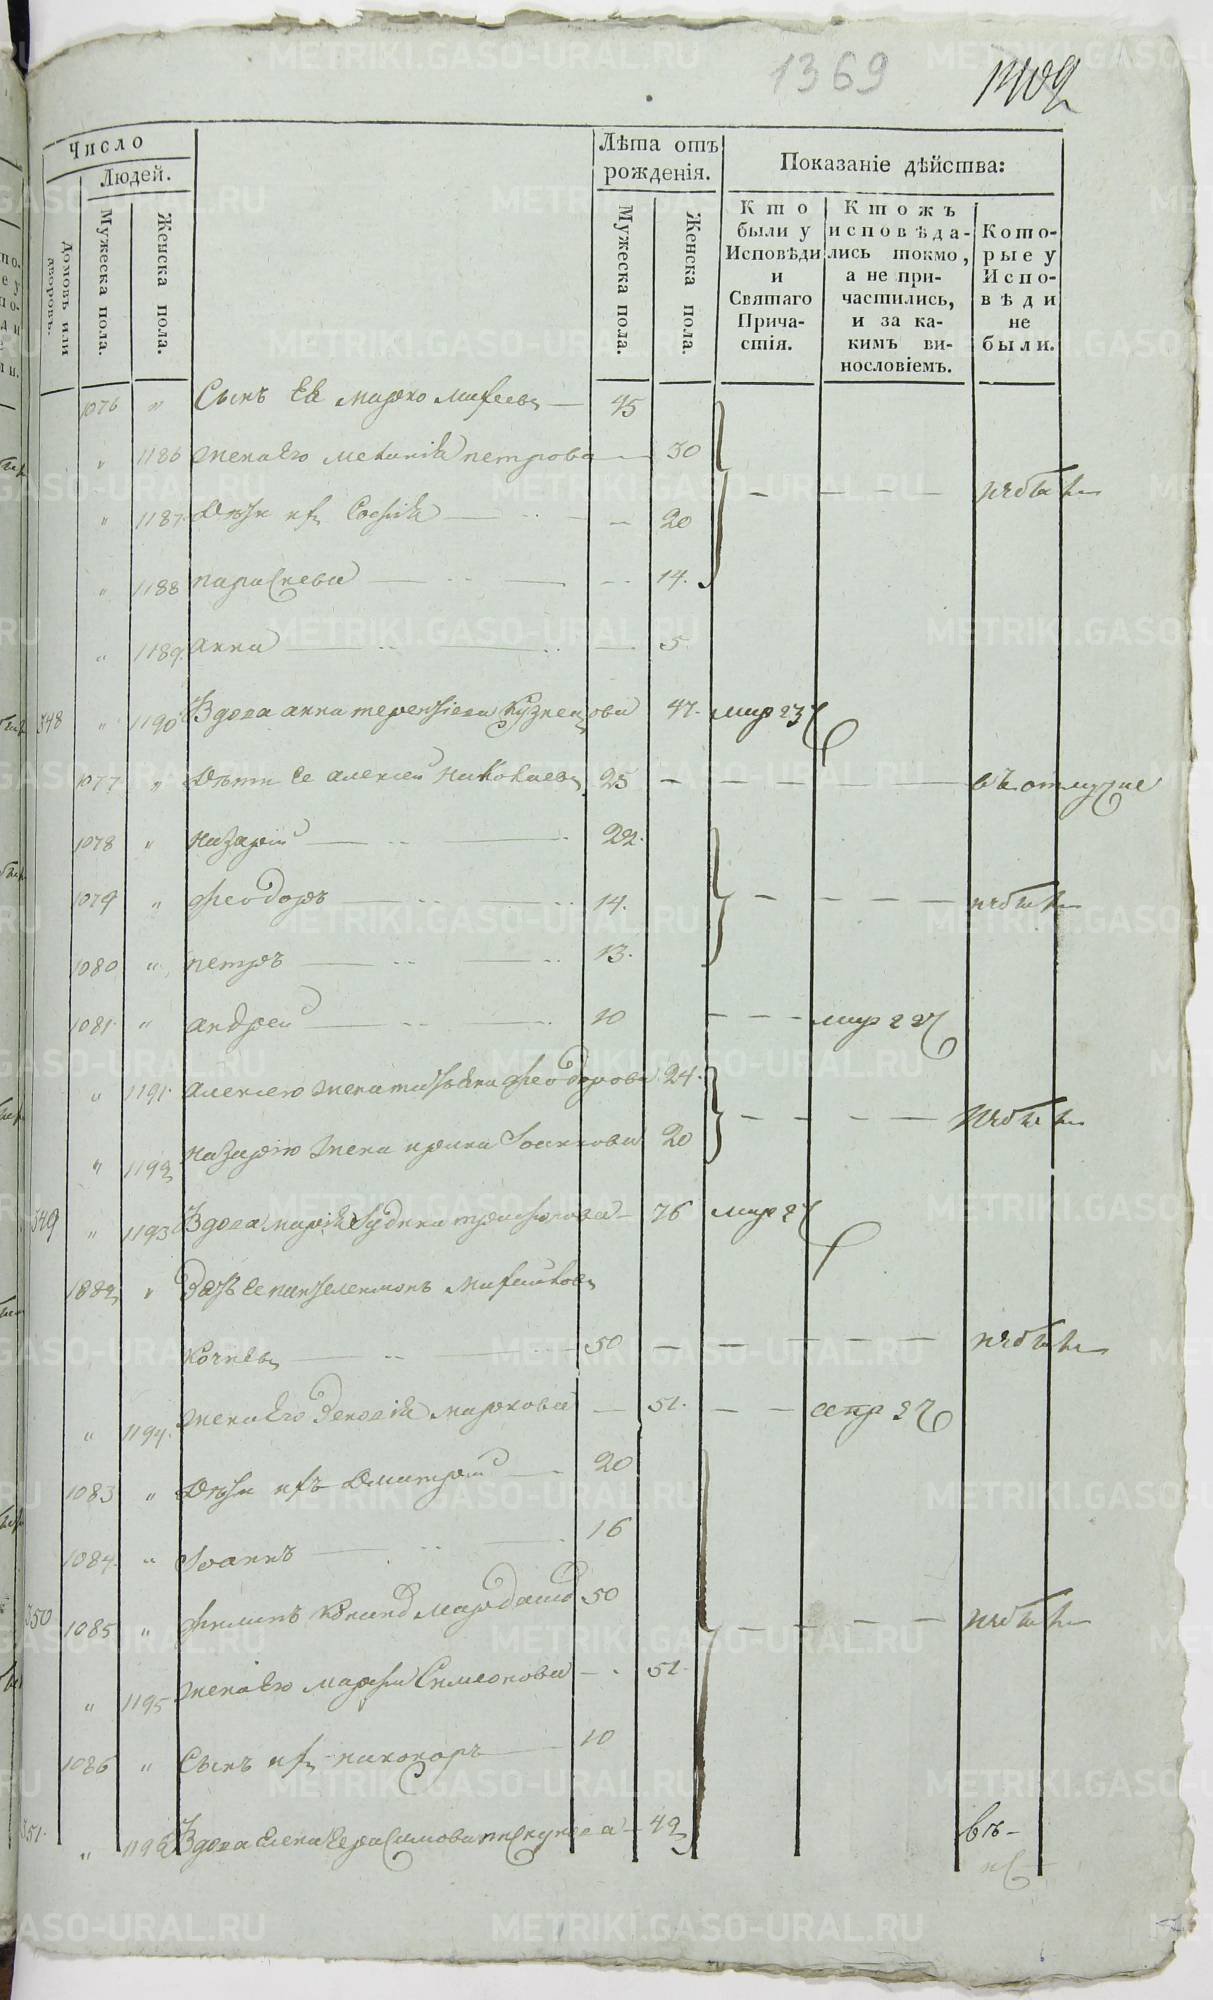 1369 1409
Число
Людей.
Домовъ или дворовъ.
Мужеска пола.
Женска пола.
Лѣта отъ рожденія.
Мужеска пола.
Женска пола.
Показаніе дѣйства:
Кто были у Исповѣди и Святаго Причастія.
Ктожъ исповѣдались токмо, а не причастились, и за какимъ винословіемъ.
Которые у Исповѣди не были.
1076 " Сынъ Ея марко михеевъ 45
" 1186 жена Его меланія петрова 30
" 1187 Дѣти ихъ Софія 20 небыли
" 1188 параскева 14.
" 1189. анна 5.
348 " 1190 Вдова анна терентіева Кузнецова 47. мар 23
1077 " Дѣти Ее алексей николаевъ 25 въ отлучке
1078 " назарій 22.
1079 " феодоръ 14. небыли
1080 " петръ 13.
1081 " андрей 10 мар 22
" 1191 алексею жена татьяна феодорова 24.
" 1192 назарію жена ирина Іоаннова 20 небыли
349 " 1193 Вдова марія трифонова 76 мар 2
1082 " Зять Ее пантелемонъ михайловъ
50 небыли
" 1194. жена Его маркова 51.
1083 " Дѣти ихъ Дмитрій 20
1084. " Іоаннъ 16
350 1085 " филипъ 50 небыли
" 1195 жена Его марфа Симеонова 51.
1086 " Сынъ ихъ никоноръ 10
351. " 1196 Вдова Елена Герасимова 42 въ